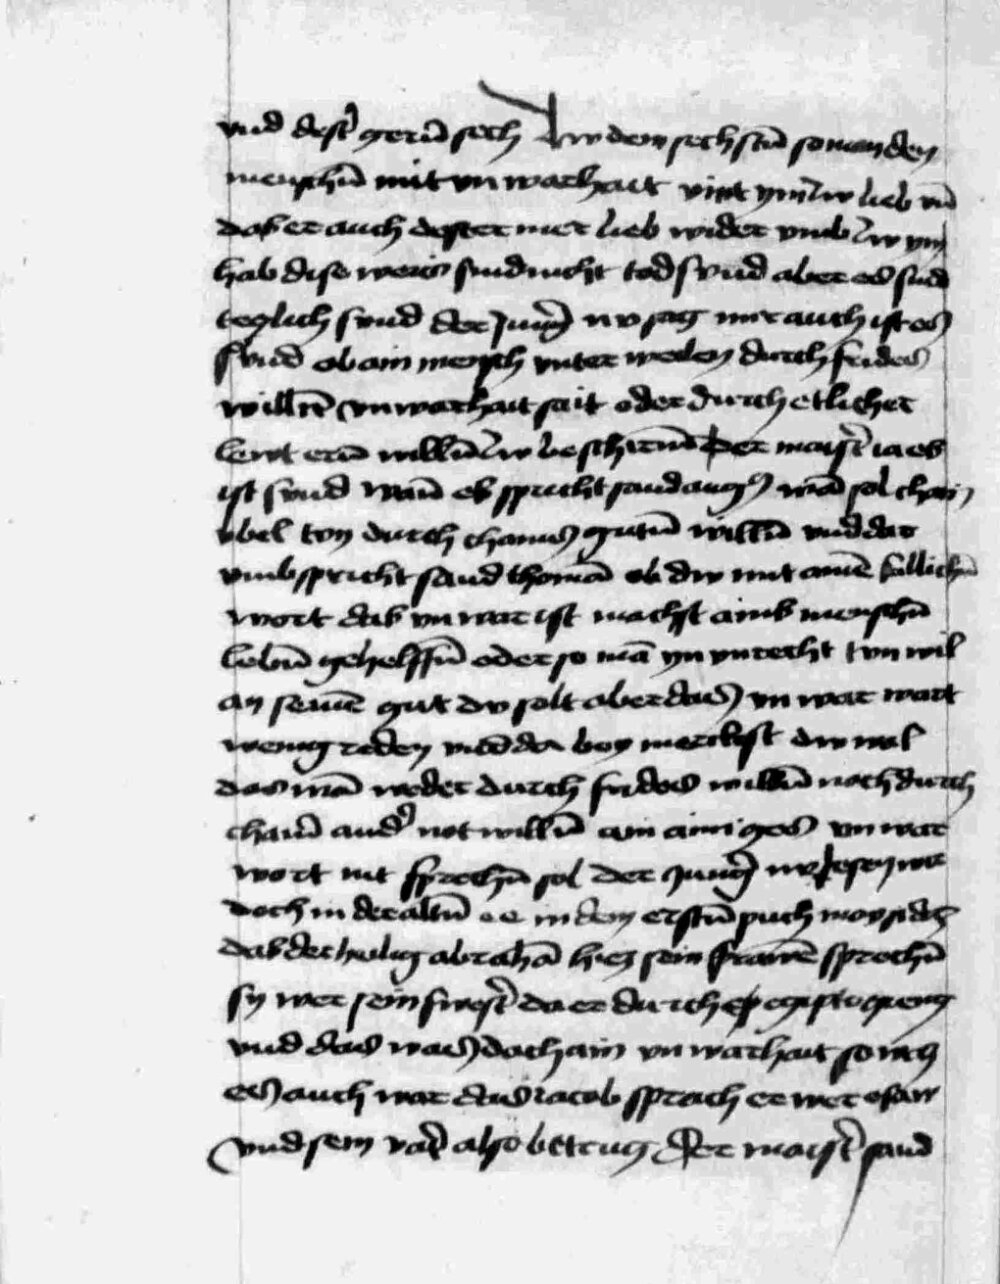 vnd dest' gern sech Zw dem sechsten so man den
menschn̄ mit vnwarhait vint ym zw lieb vn̄
das er auch dester mer lieb wider vmb zw ym
hab dise weis sind nicht tod sund aber es sind
teglich sund der Jung' nv sag mir auch ist es
sund ob ain mensch vnter weilen durch frides
willn̄ vnwarhait sait oder durch etlicher
lewt ern̄ willn̄ zw beschirmn̄ Der maist' ia es
ist sund wan̄ es spricht sand aug' man̄ sol chain
vbel ton durch chains gutn̄ willn̄ vnd dar
vmb spricht sand thoman̄ ob dw mit ainē
wort das vnwar ist machst aims menschn̄
lebn̄ gehelffn̄ oder so mā yn vnrecht tvn wil
an seinē gut dv solt aber das vnwar wart
wenig reden vnd da bey merckst dw wal
das mā weder durch frides willn̄ noch durch
chain̄ and' not willn̄ ain ainiges vnwar
wort nit sprechn̄ sol Der Jung' nv lesen wir
doch in der altn̄ ee in dem erstn̄ puch moysi das
das der heilig abrahā hies sein frawē sprechn̄
sy wer sein swest' da er durch egipto gieng
vnd das was doch ain vnwarhait so mag
es auch war das iacob sprach er wer esaw
vnd sein vat' also betrug Der maist' sand